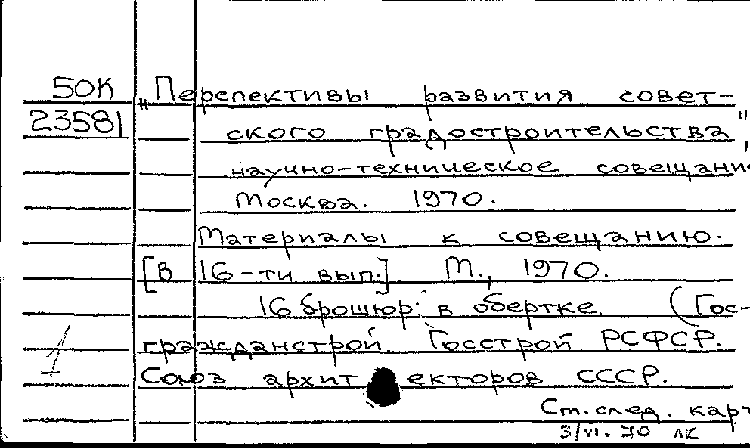 50К „Перспективы развития совет-
23581 ского градостроительства",
научно-техническое совещани
Москва. 1970.
Материалы к совещанию.
[В 16-ти вып.] М., 1970.
16 брошюр. в обертке. (Гос-
гражданстрой. Госстрой РСФСР.
1
Союз архитекторов СССР.
См. след. карт
3/VI. 70 лк